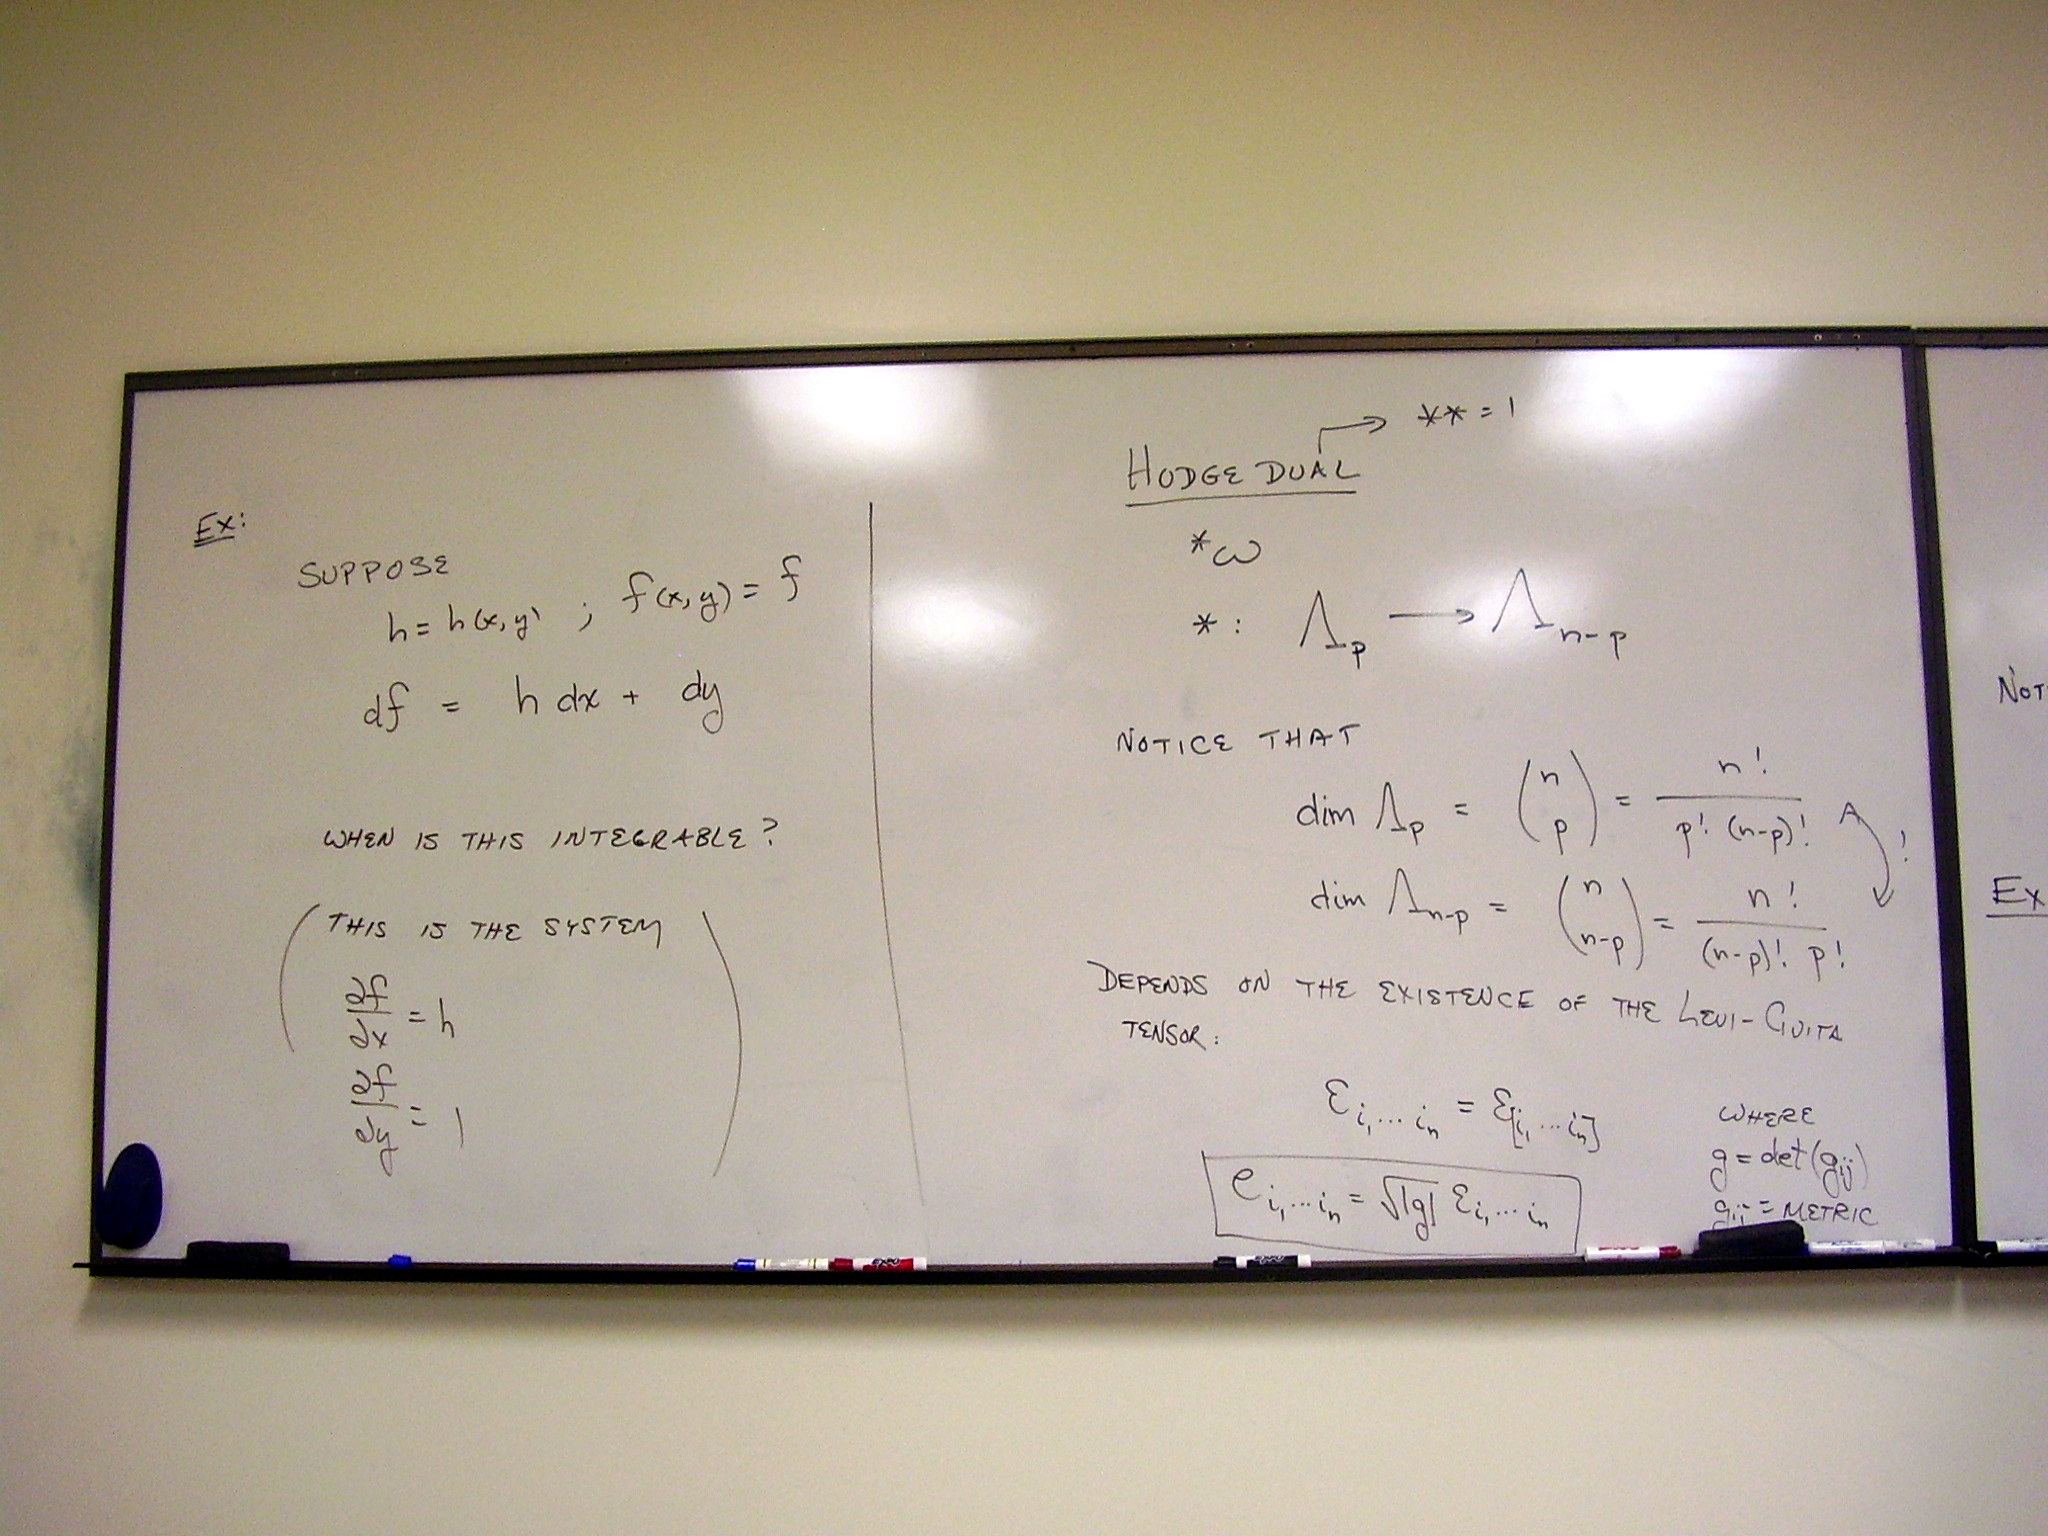 Ex:
SUPPOSE
h = h(x,y) ; f(x,y) = f
df = h dx + dy
WHEN IS THIS INTEGRABLE?
( THIS IS THE SYSTEM )
∂f/∂x = h
∂f/∂y = 1
HODGE DUAL → ** = 1
*ω
* : Λ_p → Λ_{n-p}
NOTICE THAT
dim Λ_p = (n p) = n! / p! (n-p)!
!
dim Λ_{n-p} = (n n-p) = n! / (n-p)! p!
DEPENDS ON THE EXISTENCE OF THE LEVI-CIVITA
TENSOR:
ε_{i₁ ... i_n} = ε_{[i₁ ... i_n]}
e_{i₁ ... i_n} = √|g| ε_{i₁ ... i_n}
WHERE
g = det(g_ij)
g_ij = METRIC
NOT
Ex
EXPO